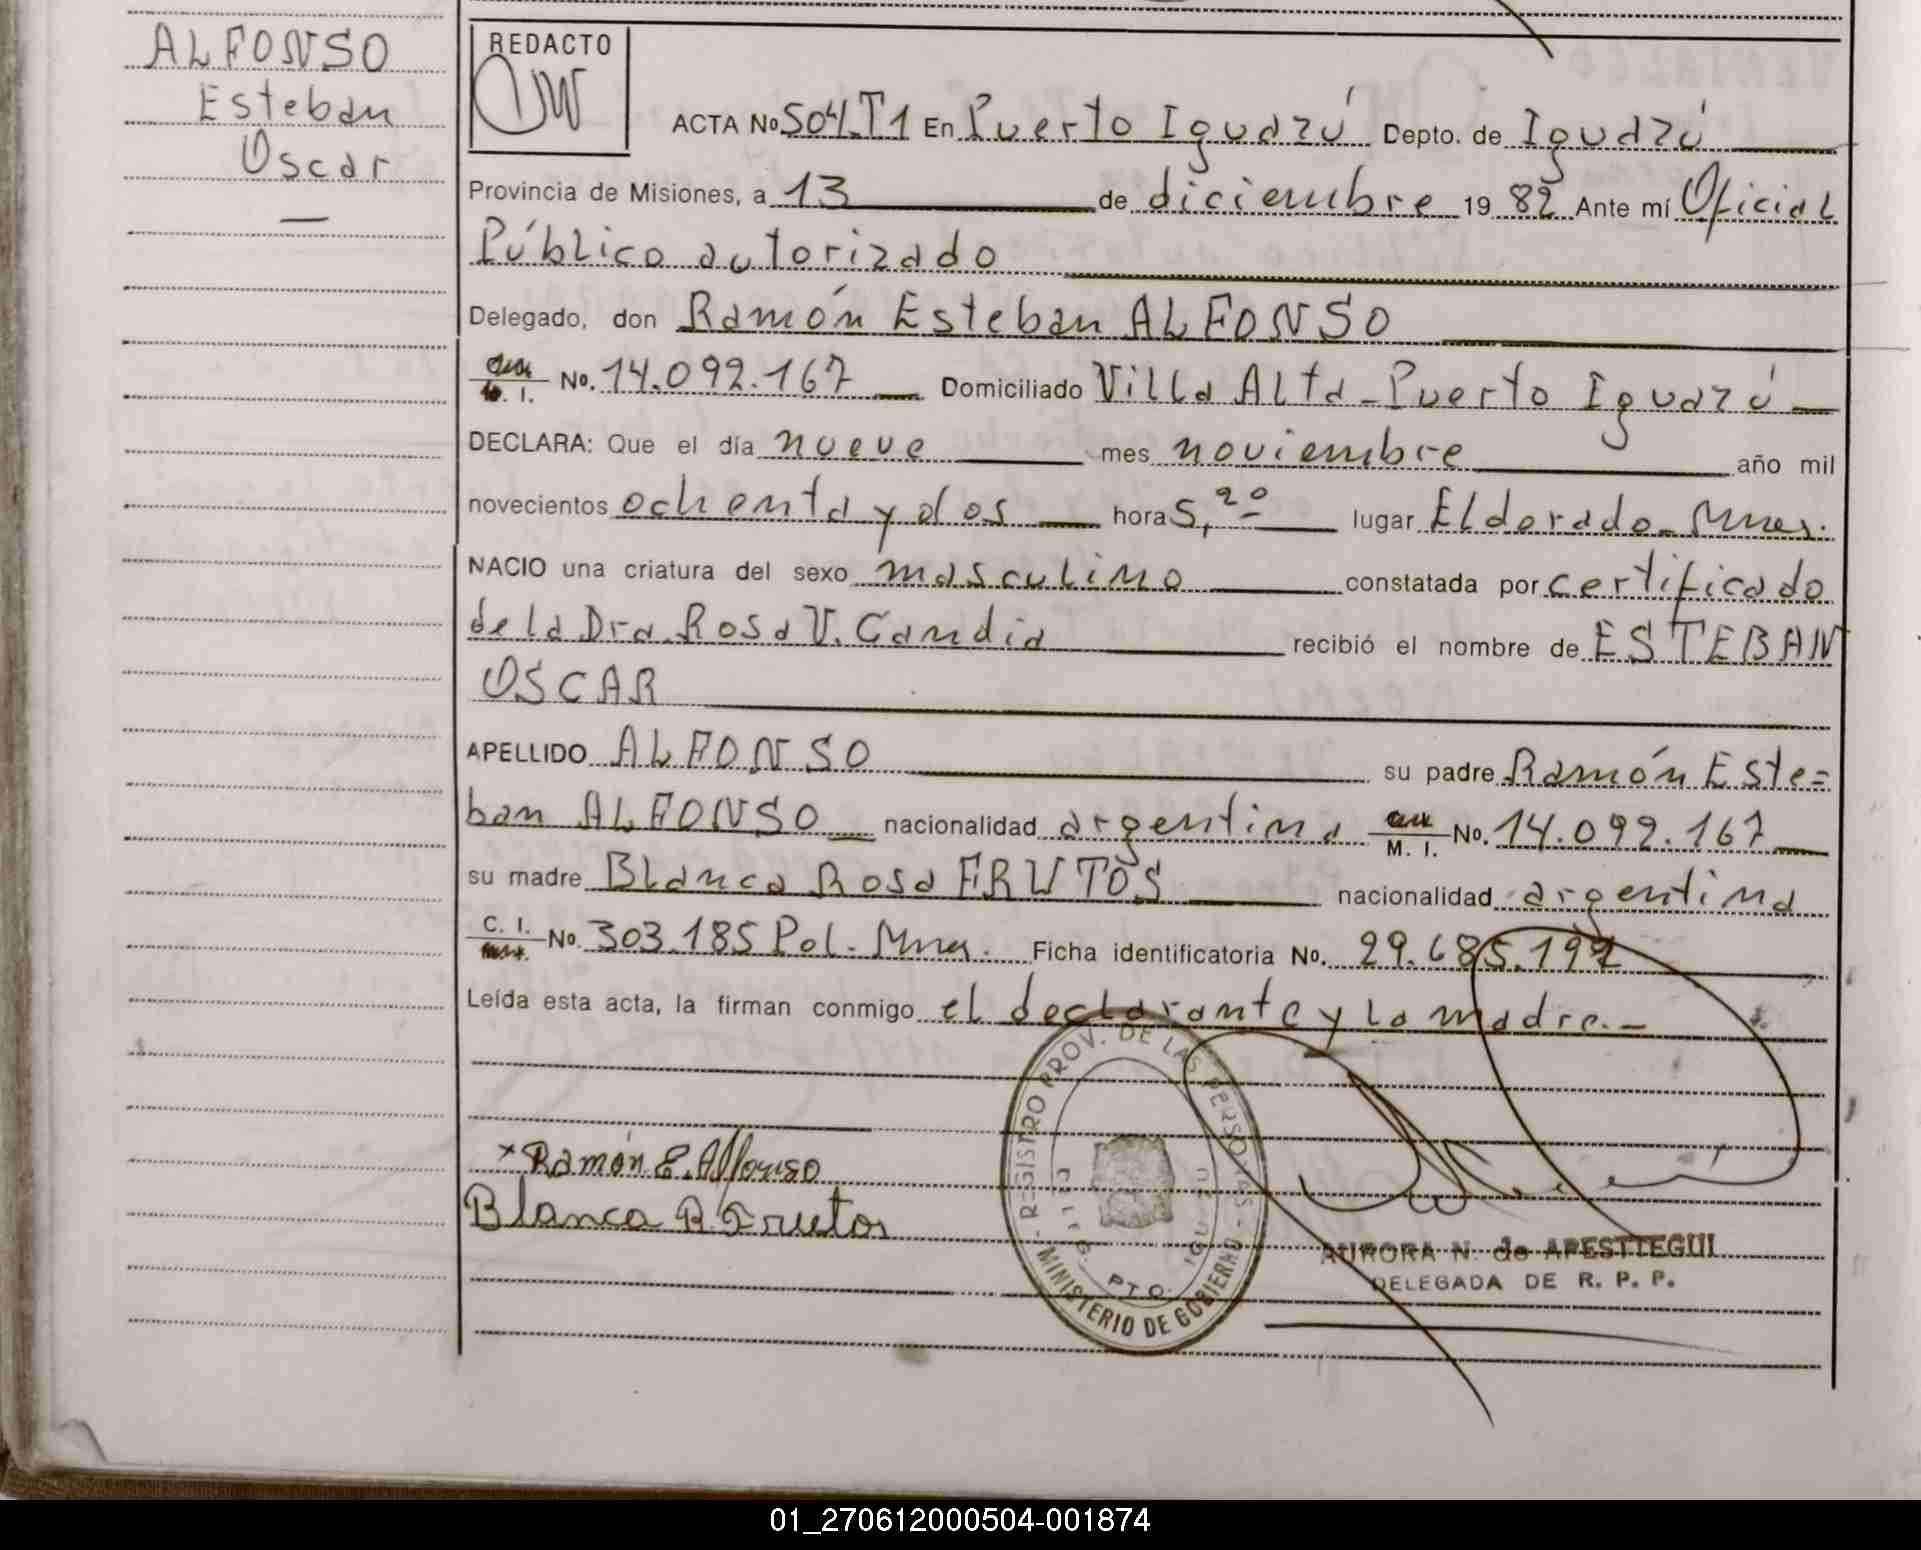 ALFONSO
Esteban
Oscar
—
REDACTO
ACTA No 504.T1 En Puerto Iguazú Depto. de Iguazú
Provincia de Misiones, a 13 de diciembre 19 82 Ante mí Oficial
Público autorizado
Delegado, don Ramón Esteban ALFONSO
No. 14.092.167 Domiciliado Villa Alta - Puerto Iguazú
DECLARA: Que el día nueve mes noviembre año mil
novecientos ochenta y dos hora 5,20 lugar Eldorado - Mnes.
NACIO una criatura del sexo masculino constatada por certificado
de la Dra. Rosa V. Candia recibió el nombre de ESTEBAN
OSCAR
APELLIDO ALFONSO su padre Ramón Este=
ban ALFONSO nacionalidad argentina M. I. No. 14.092.167
su madre Blanca Rosa FRUTOS nacionalidad argentina
C. I. No. 303.185 Pol. Mnes. Ficha identificatoria No. 29.685.
Leída esta acta, la firman conmigo el declarante y la madre.-
x Ramón E. Alfonso
Blanca R. Frutos
REGISTRO PROV. DE LAS PERSONAS - MINISTERIO DE GOBIERNO
PTO. IGUAZU
AURORA N. de APESTEGUI
DELEGADA DE R. P. P.
01_270612000504-001874